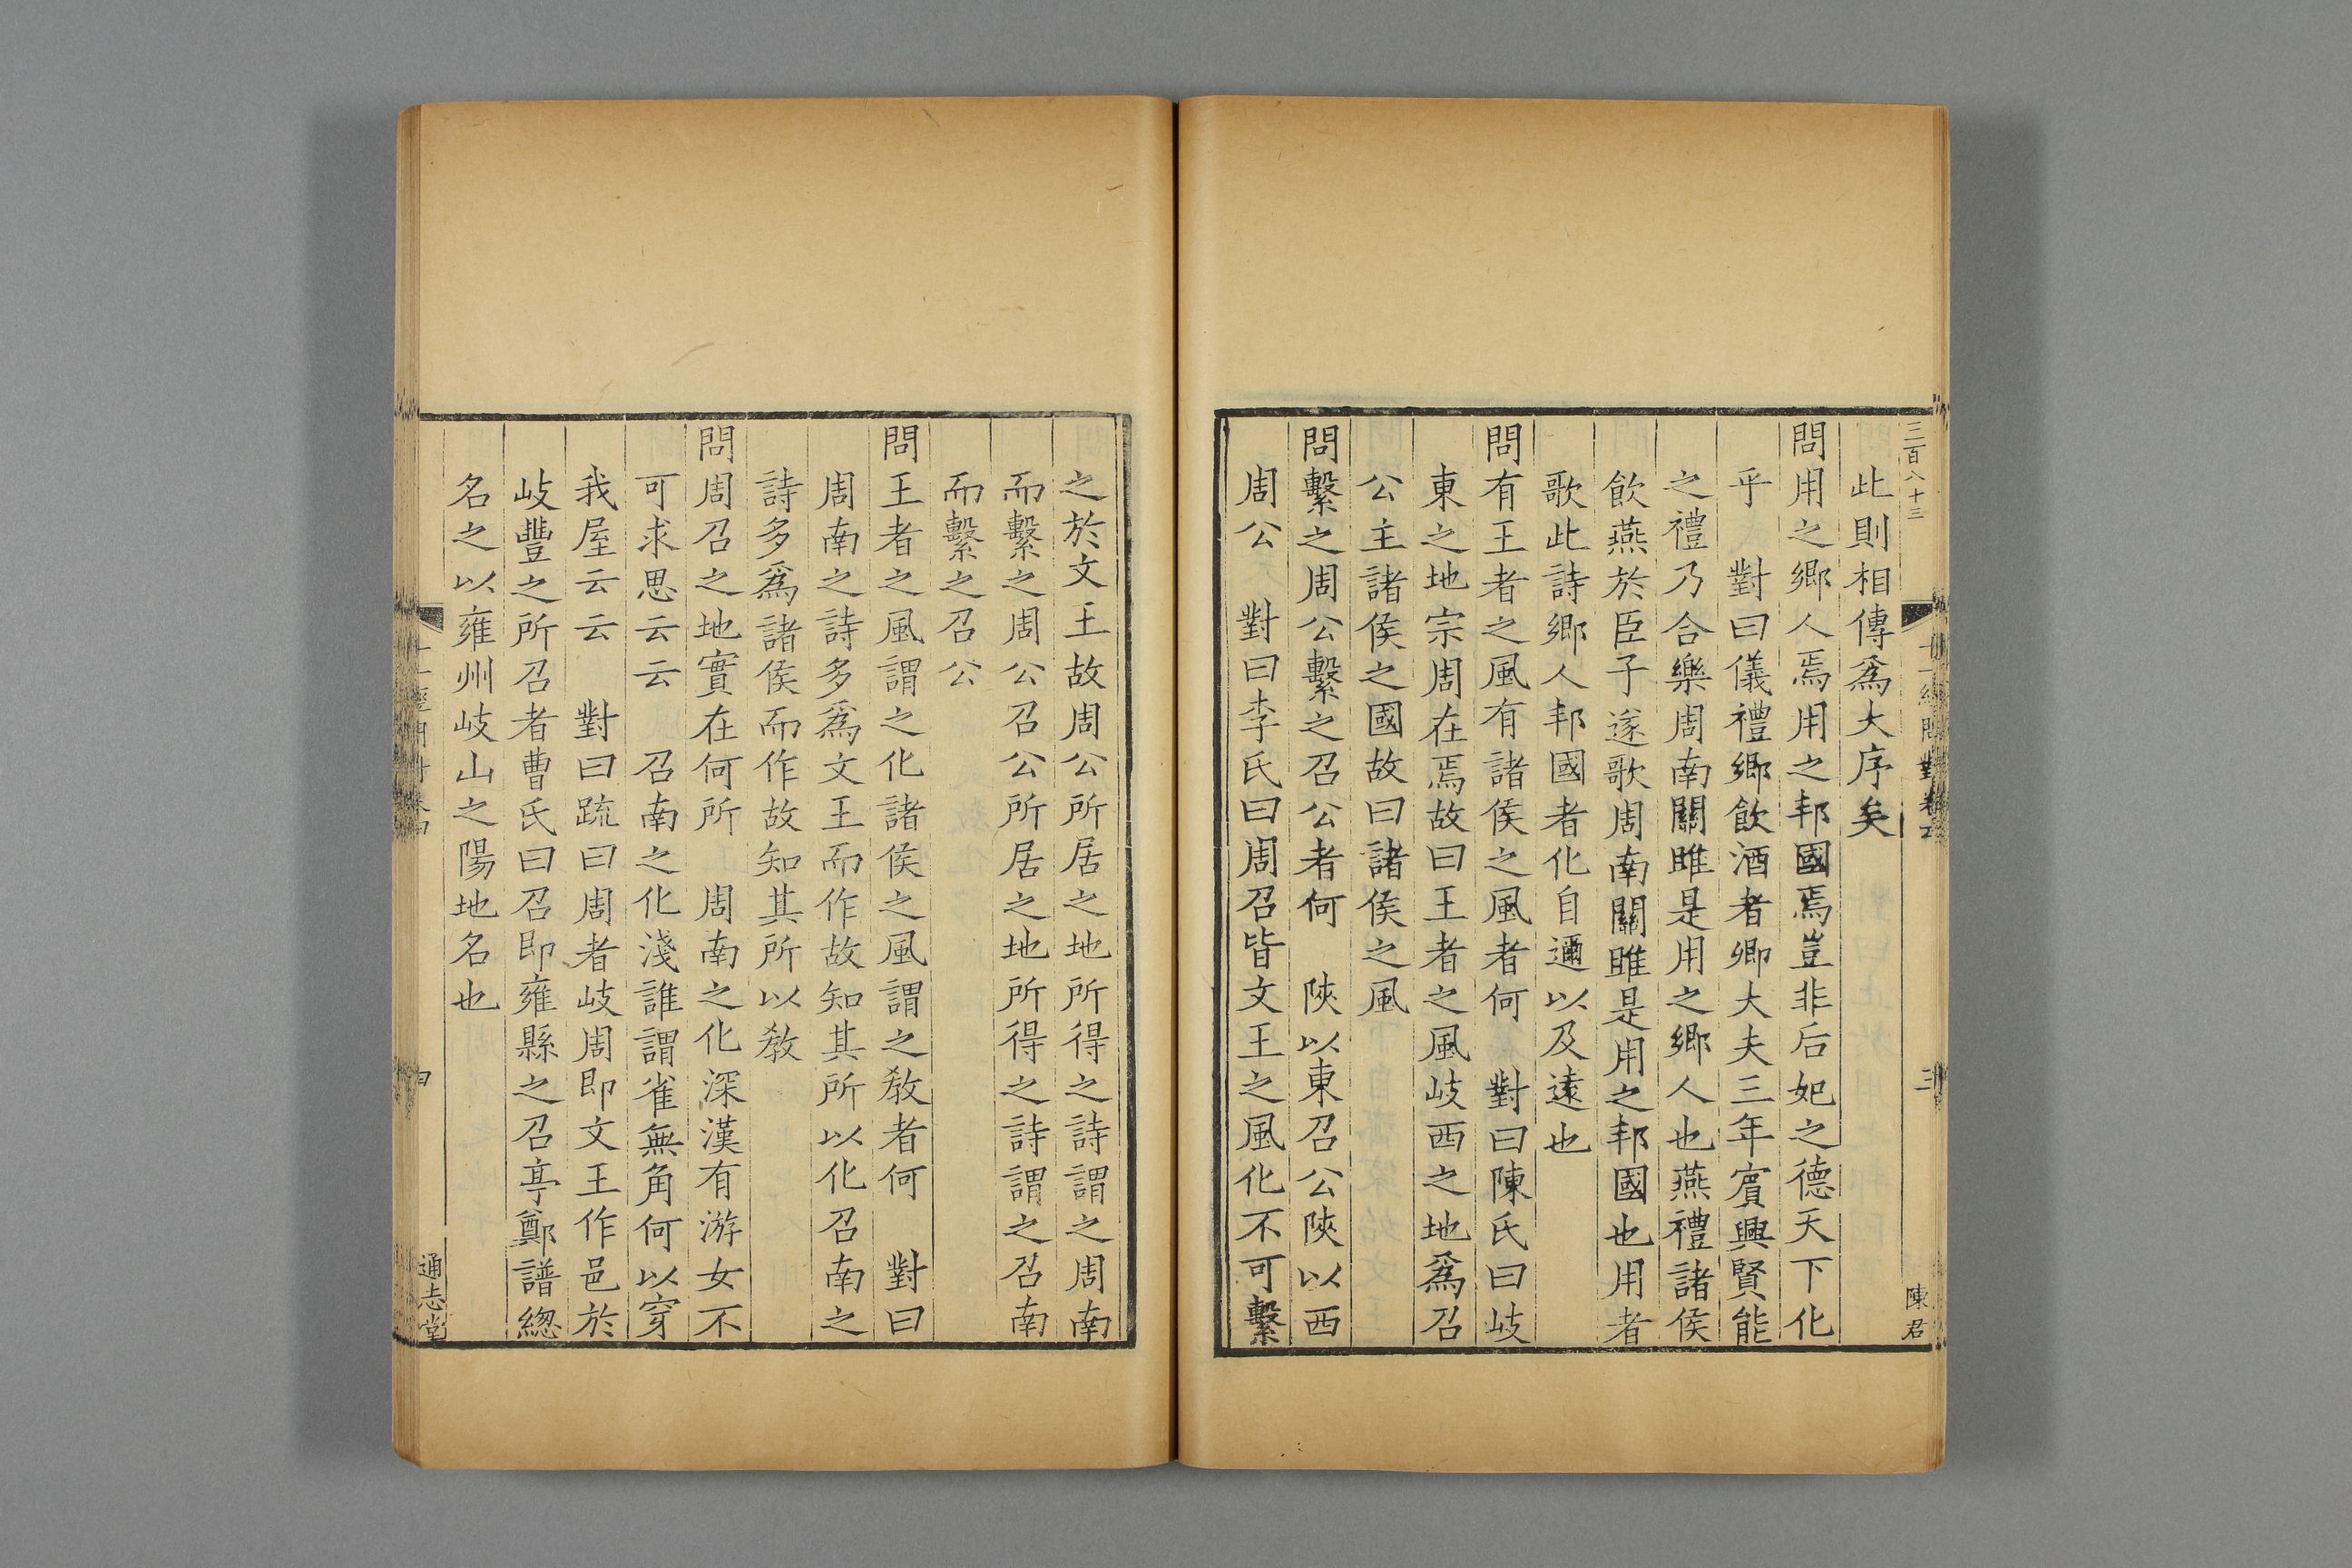 三百八十三
三
陳君
此則相傳爲大序矣
問用之鄉人焉用之邦國焉豈非后妃之德天下化
乎 對曰儀禮鄉飲酒者卿大夫三年賓興賢能
之禮乃合樂周南關雎是用之鄉人也燕禮諸侯
飲燕於臣子遂歌周南關雎是用之邦國也用者
歌此詩鄉人邦國者化自邇以及遠也
問有王者之風有諸侯之風者何 對曰陳氏曰岐
東之地宗周在焉故曰王者之風岐西之地爲召
公主諸侯之國故曰諸侯之風
問繫之周公繫之召公者何 陝以東召公陝以西
周公 對曰李氏曰周召皆文王之風化不可繫
之於文王故周公所居之地所得之詩謂之周南
而繫之周公召公所居之地所得之詩謂之召南
而繫之召公
問王者之風謂之化諸侯之風謂之教者何 對曰
周南之詩多爲文王而作故知其所以化召南之
詩多爲諸侯而作故知其所以教
問周召之地實在何所 周南之化深漢有游女不
可求思云云 召南之化淺誰謂雀無角何以穿
我屋云云 對曰疏曰周者岐周即文王作邑於
岐豐之所召者曹氏曰召即雍縣之召亭鄭譜緫
名之以雍州岐山之陽地名也
通志堂